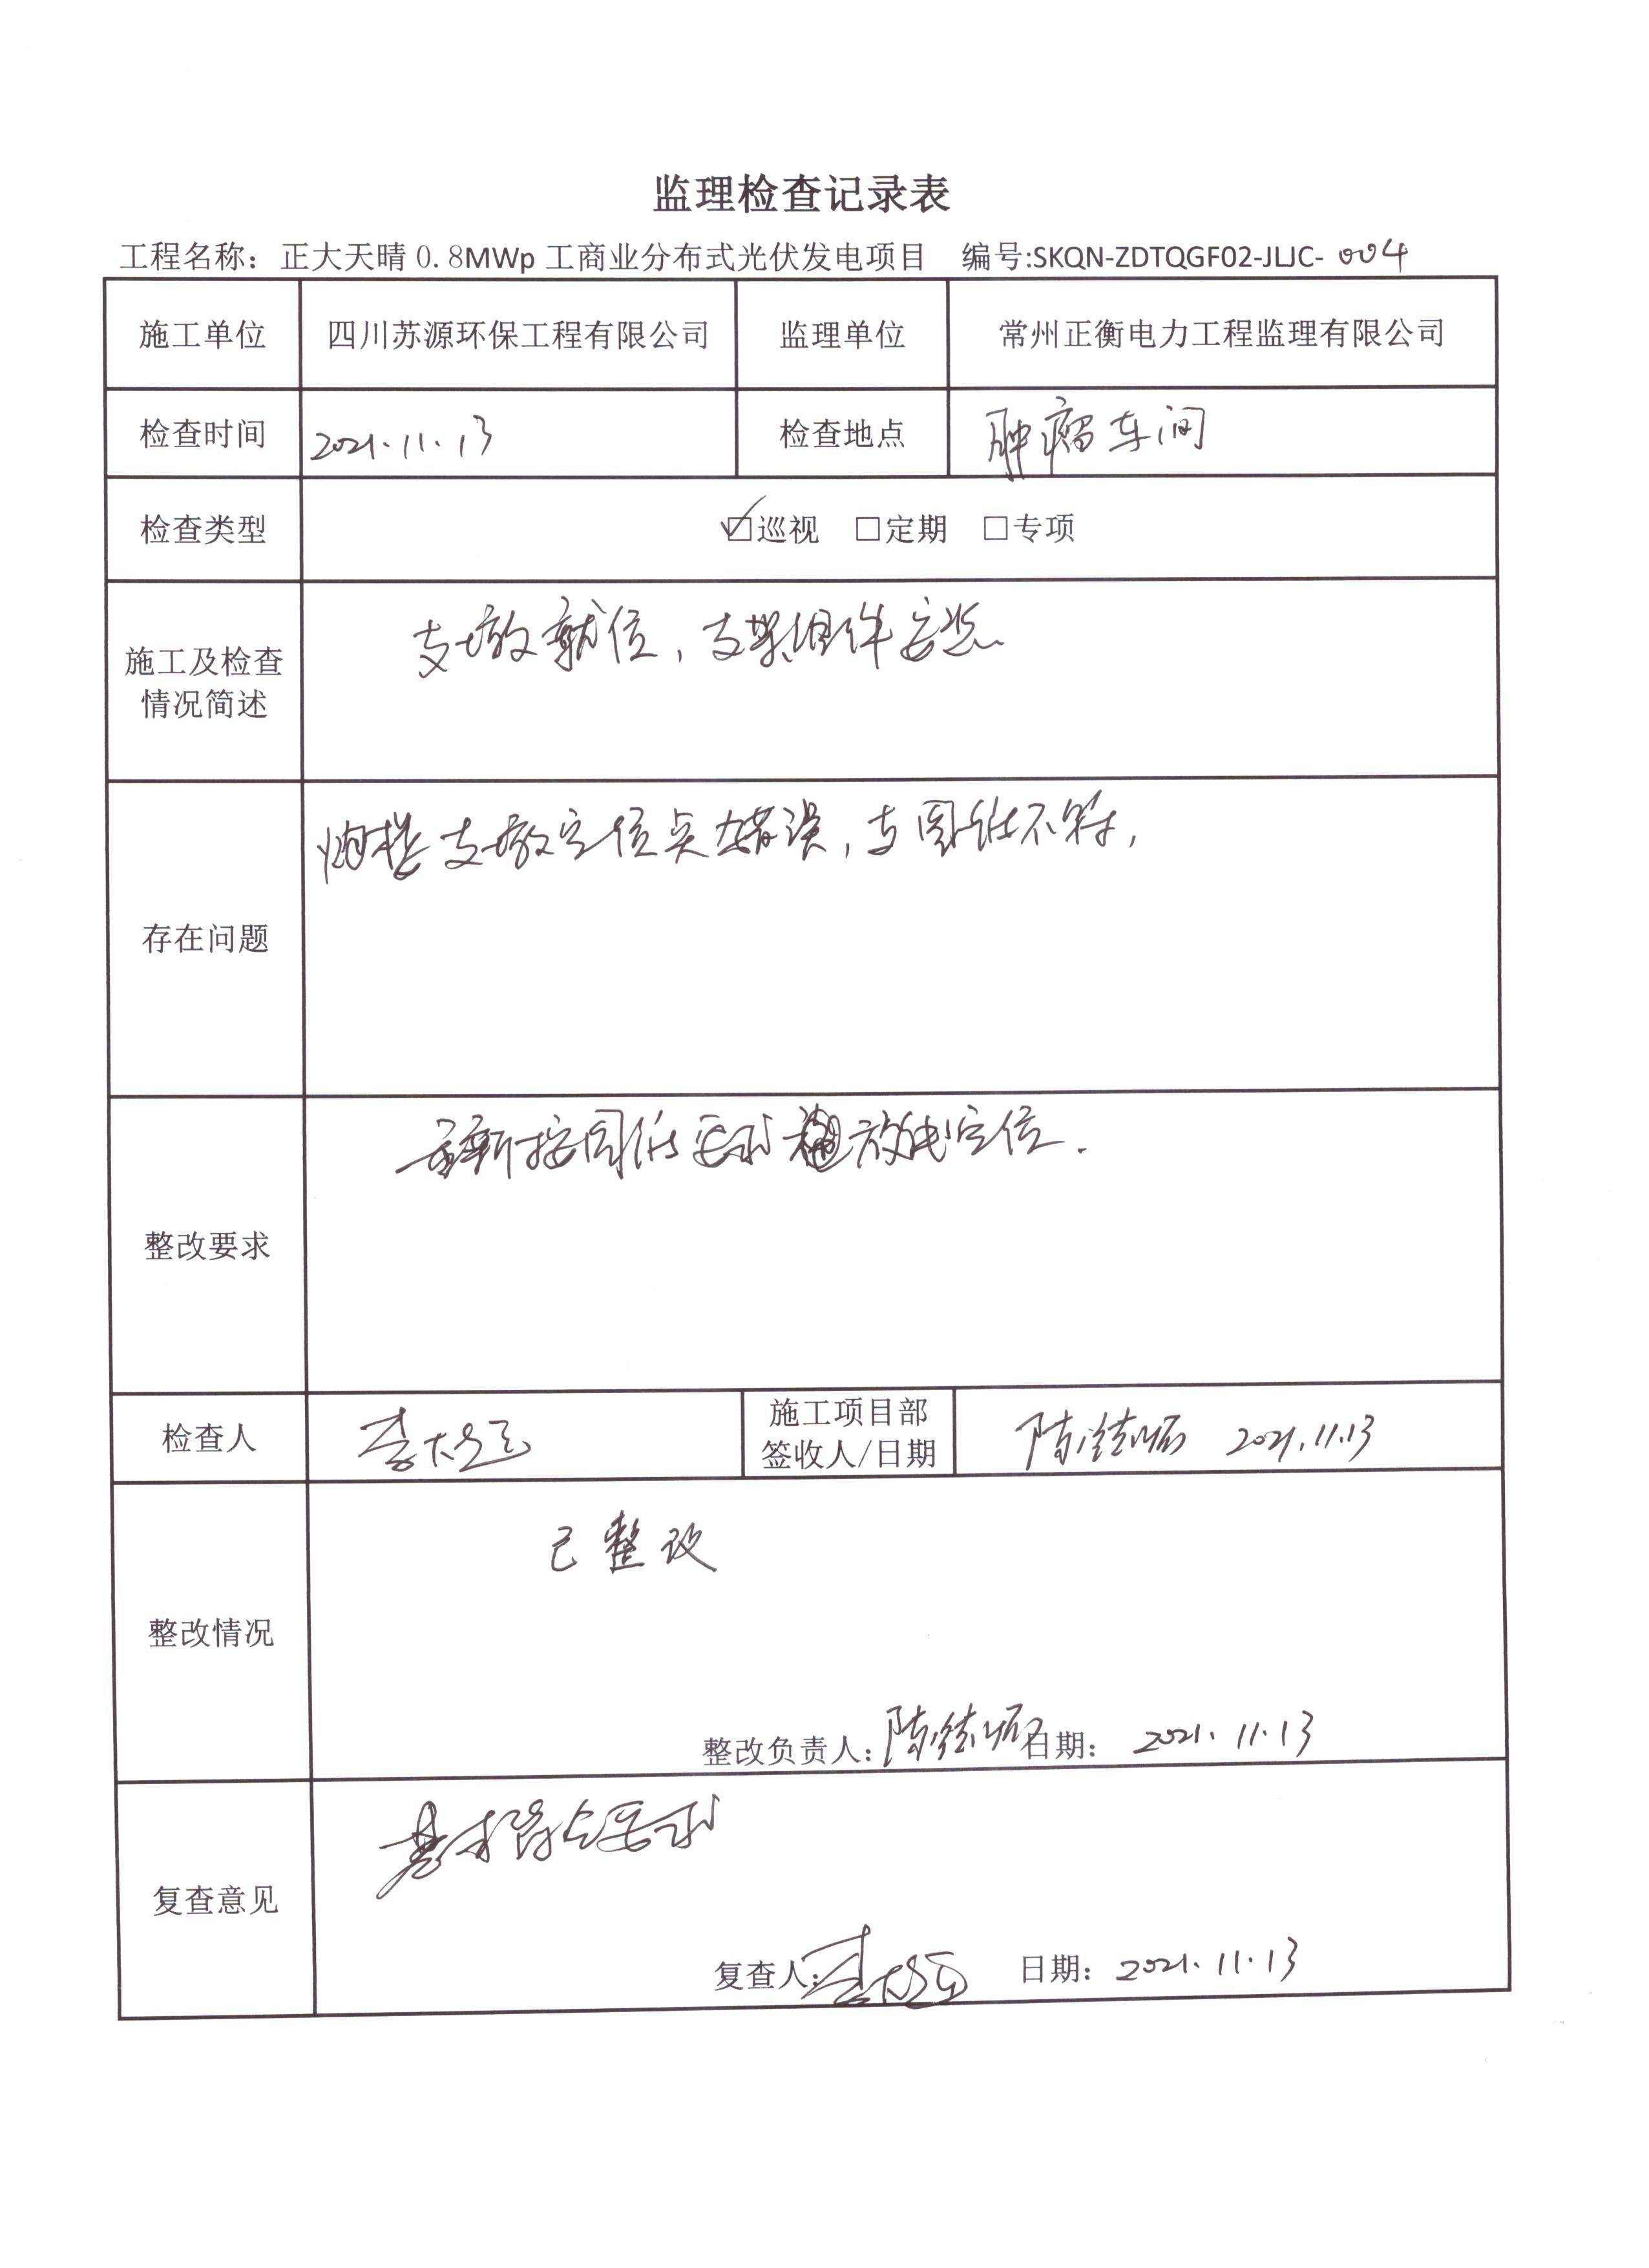 监理检查记录表
工程名称：正大天晴0.8MWp工商业分布式光伏发电项目 编号:SKQN-ZDTQGF02-JLJC-004
施工单位 四川苏源环保工程有限公司 监理单位 常州正衡电力工程监理有限公司
检查时间 2021.11.13 检查地点 肿瘤车间
检查类型 ☑巡视 □定期 □专项
施工及检查
情况简述
支墩就位，支架组件安装
存在问题
支墩定位点错误，与图纸不符，
整改要求
重新按图纸要求放线定位.
检查人
施工项目部
签收人/日期
陈 2021.11.13
整改情况
已整改
整改负责人：陈 日期： 2021.11.13
复查意见
基本符合要求
复查人： 日期：2021.11.13